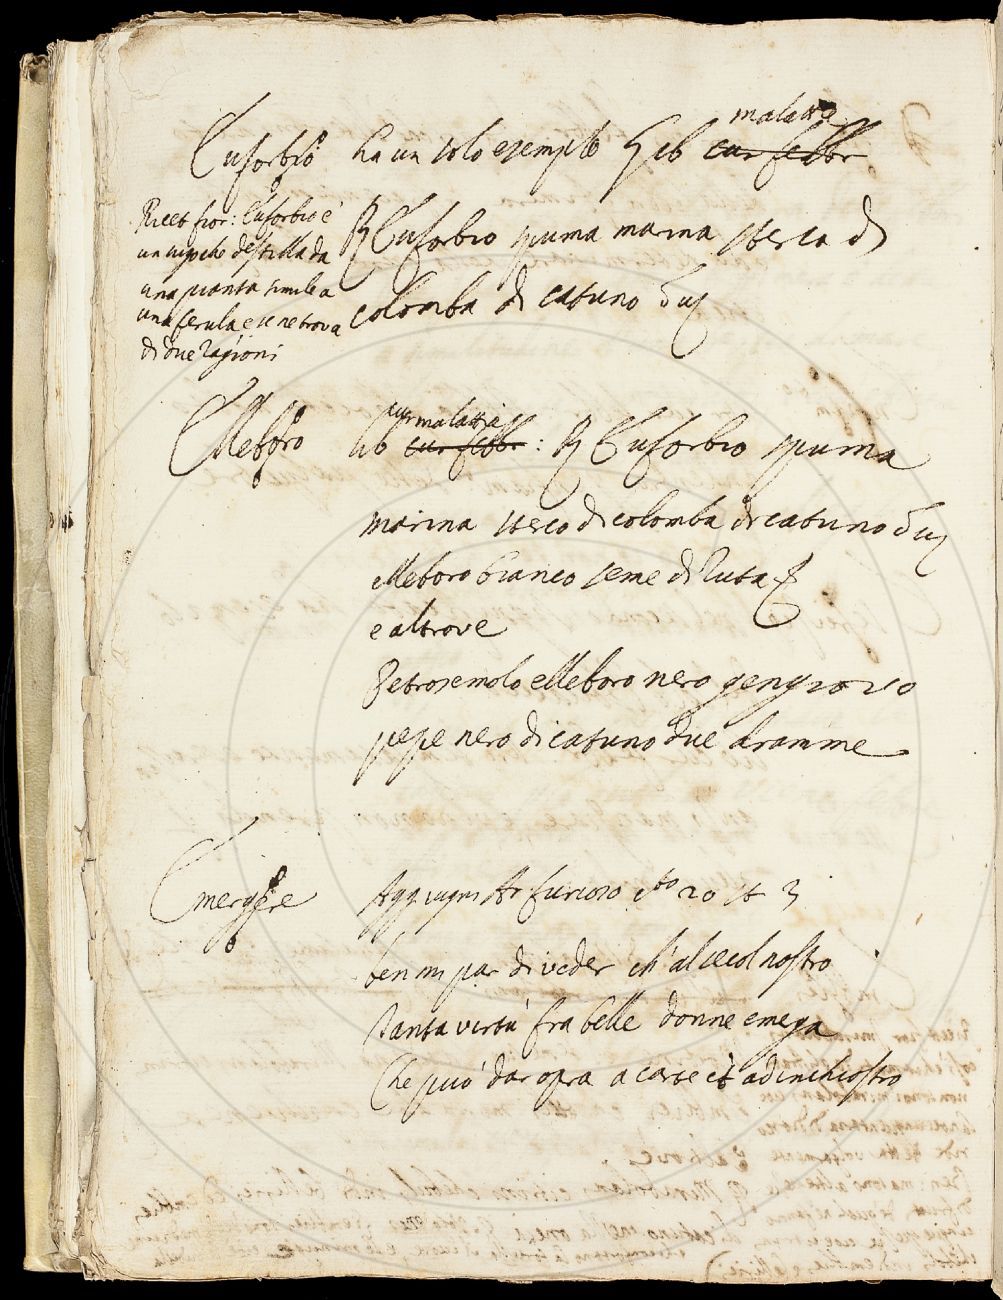 malattie
Euforbio ha un solo esempio lib cur febbr
Ricet fior: Euforbio è
un licore destilla da
una pianta simile a
una ferula e se ne trova
di due ragioni
℞ Euforbio spuma marina sterco di
colomba di catuno
cur malattie
Elleboro lib cur febbr: ℞ Euforbio spuma
marina sterco di colomba di catuno
elleboro bianco seme di Ruta
e altrove
Petrosemolo elleboro nero gengiovo
pepe nero di catuno due dramme
Emergere Aggiugni Ar furioso cto 20 st 3
ben mi par di veder ch'al secol nostro
Tanta virtù fra belle donne emerga
Che può dar opra a carte et ad inchiostro